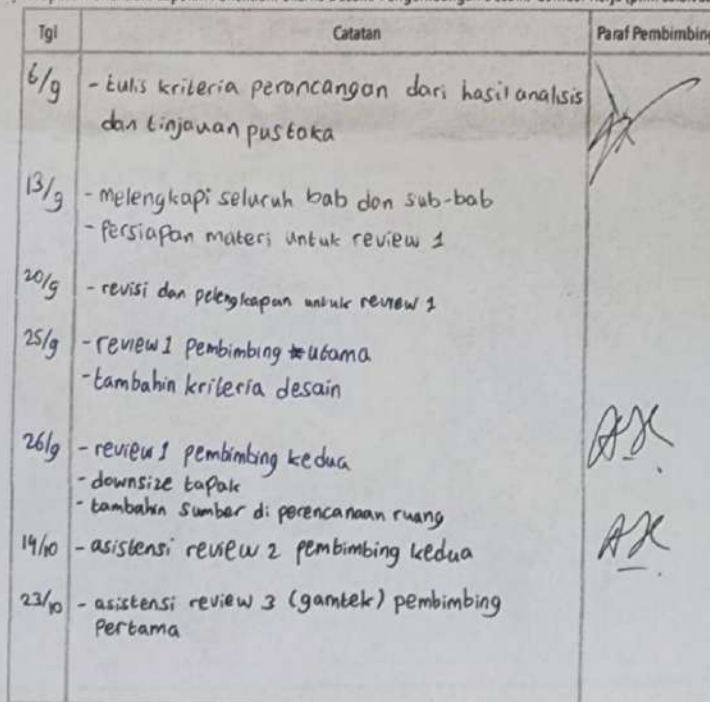 Tgl Catatan Paraf Pembimbing
6/9 - tulis kriteria perancangan dari hasil analisis
dan tinjauan pustaka
13/9 - melengkapi seluruh bab dan sub-bab
- Persiapan materi untuk review 1
20/9 - revisi dan pelengkapan untuk review 1
25/9 - review 1 pembimbing utama
- tambahin kriteria desain
26/9 - review 1 pembimbing kedua
- downsize tapak
- tambahin sumber di perencanaan ruang
14/10 - asistensi review 2 pembimbing kedua
23/10 - asistensi review 3 (gamtek) pembimbing
Pertama